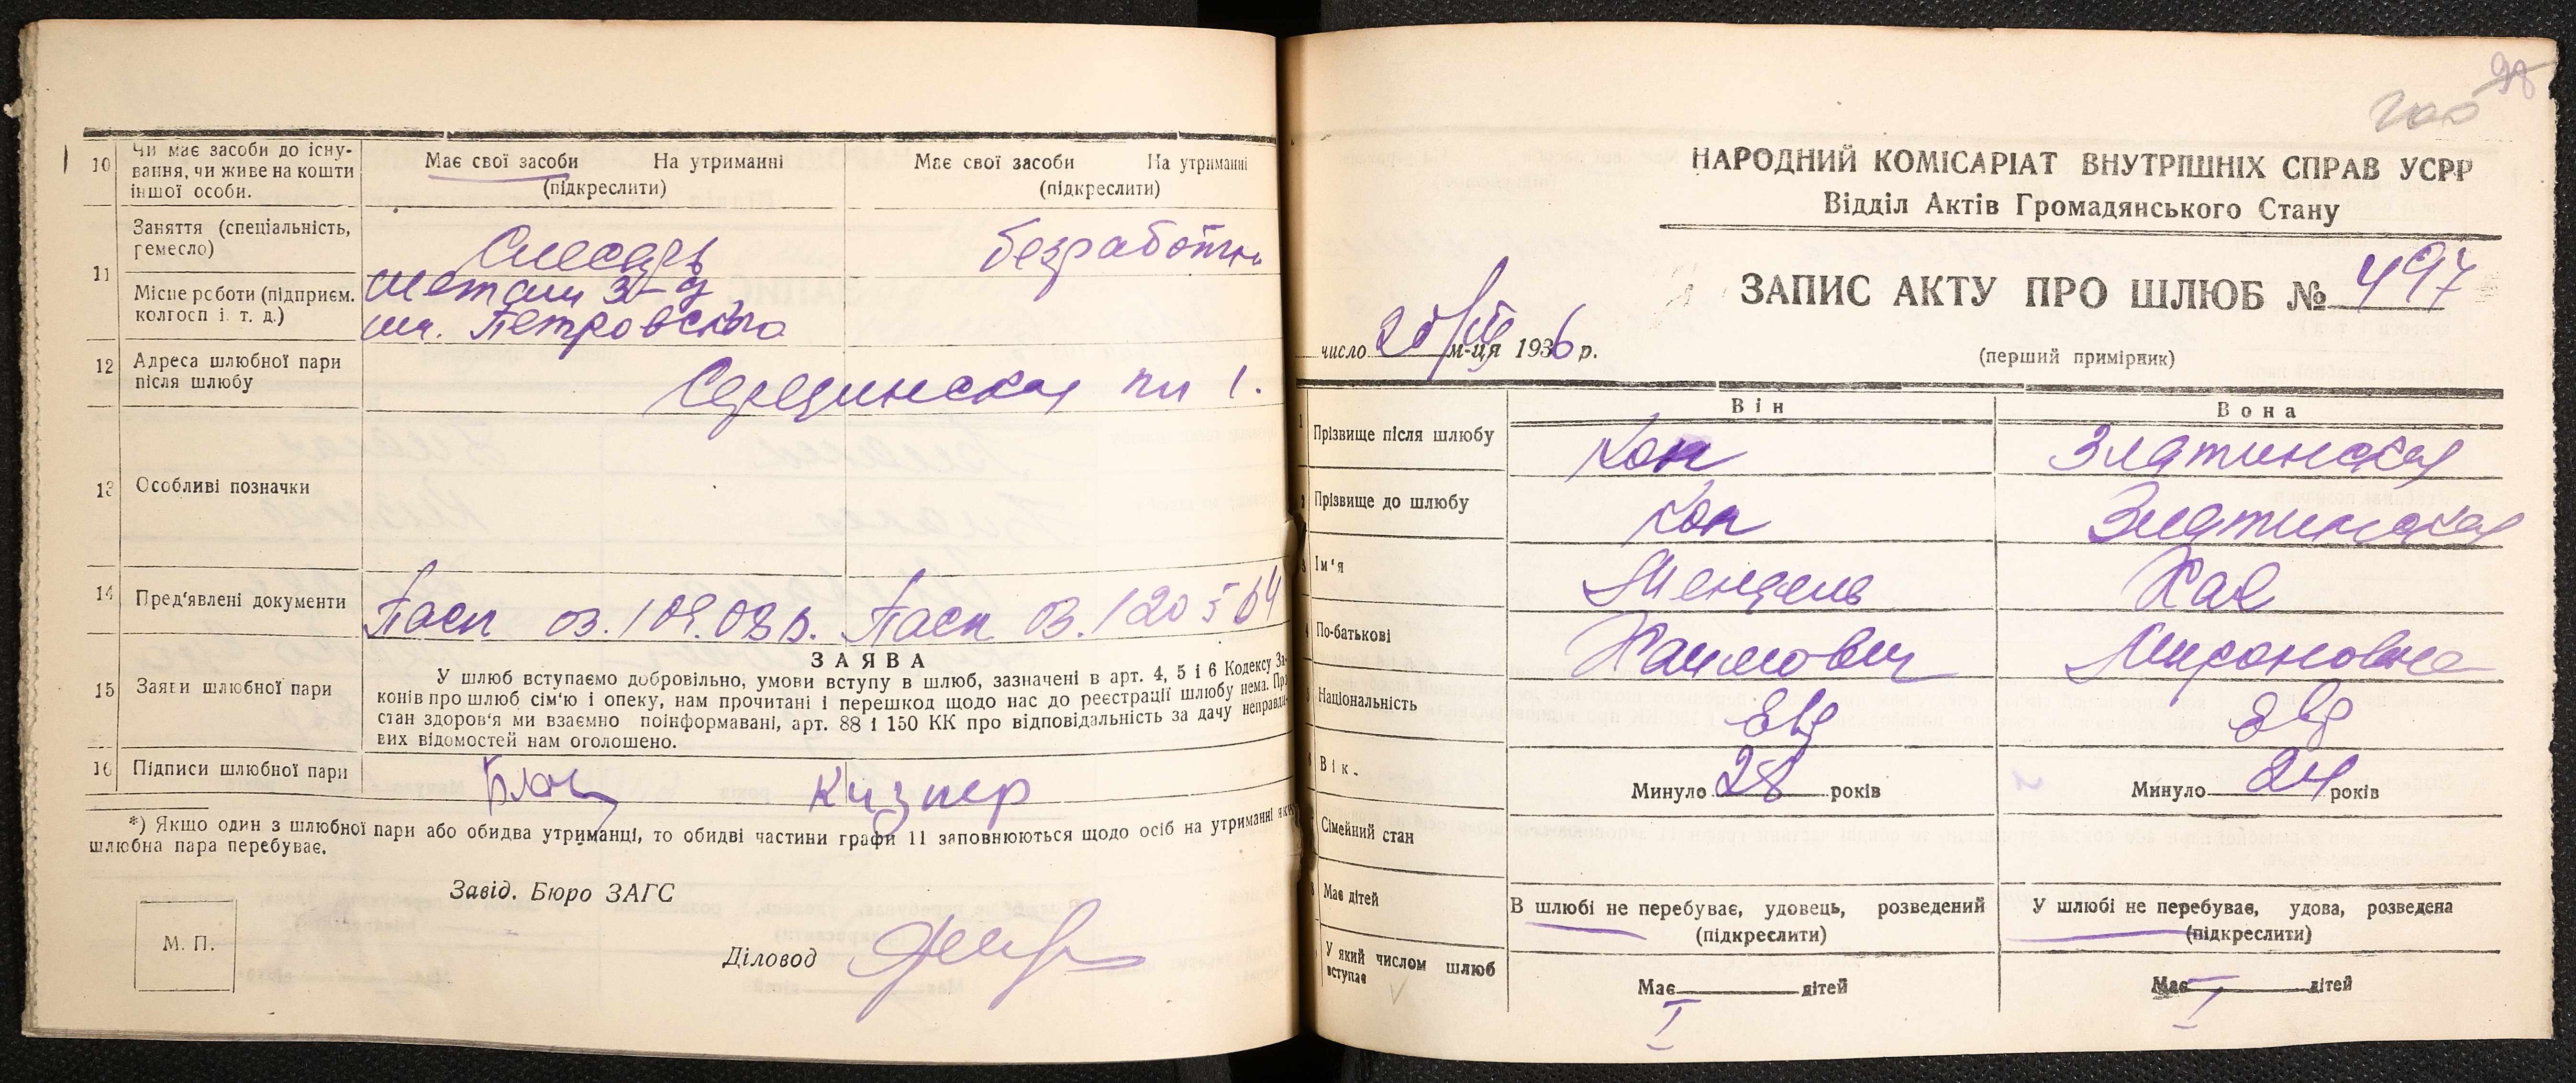 10 Чи має засоби до існування, чи живе на кошти іншої особи.
Має свої засоби На утриманні
(підкреслити)
Має свої засоби На утриманні
(підкреслити)
11 Заняття (спеціальність, ремесло)
Слесарь
безработн
Місце роботи (підприєм. колгосп і т. д.)
з-д
им. Петровского
12 Адреса шлюбної пари після шлюбу
1.
13 Особливі позначки
14 Пред'явлені документи
Пасп 03.
Пасп 03. 120564
15 Заяви шлюбної пари
ЗАЯВА
У шлюб вступаємо добровільно, умови вступу в шлюб, зазначені в арт. 4, 5 і 6 Кодексу За-
конів про шлюб сім'ю і опеку, нам прочитані і перешкод щодо нас до реєстрації шлюбу нема. Про
стан здоров'я ми взаємно поінформавані, арт. 88 і 150 КК про відповідальність за дачу неправди-
вих відомостей нам оголошено.
16 Підписи шлюбної пари
*) Якщо один з шлюбної пари або обидва утриманці, то обидві частини графи 11 заповнюються щодо осіб на утриманні яких
шлюбна пара перебуває.
Завід. Бюро ЗАГС
М. П.
Діловод
98
НАРОДНИЙ КОМІСАРІАТ ВНУТРІШНІХ СПРАВ УСРР
Відділ Актів Громадянського Стану
ЗАПИС АКТУ ПРО ШЛЮБ № 497
число м-ця 1936 р.
(перший примірник)
Він Вона
Прізвище після шлюбу
Кон Златинская
Прізвище до шлюбу
Кон Златинская
Ім'я
Мендель Хая
По-батькові
Хаимович Мироновна
Національність
Евр Евр
Вік.
Минуло 28 років
Минуло 24 років
Сімейний стан
Має дітей
В шлюбі не перебуває, удовець, розведений
(підкреслити)
У шлюбі не перебуває, удова, розведена
(підкреслити)
У який числом шлюб вступає
Має дітей
Має дітей
I I